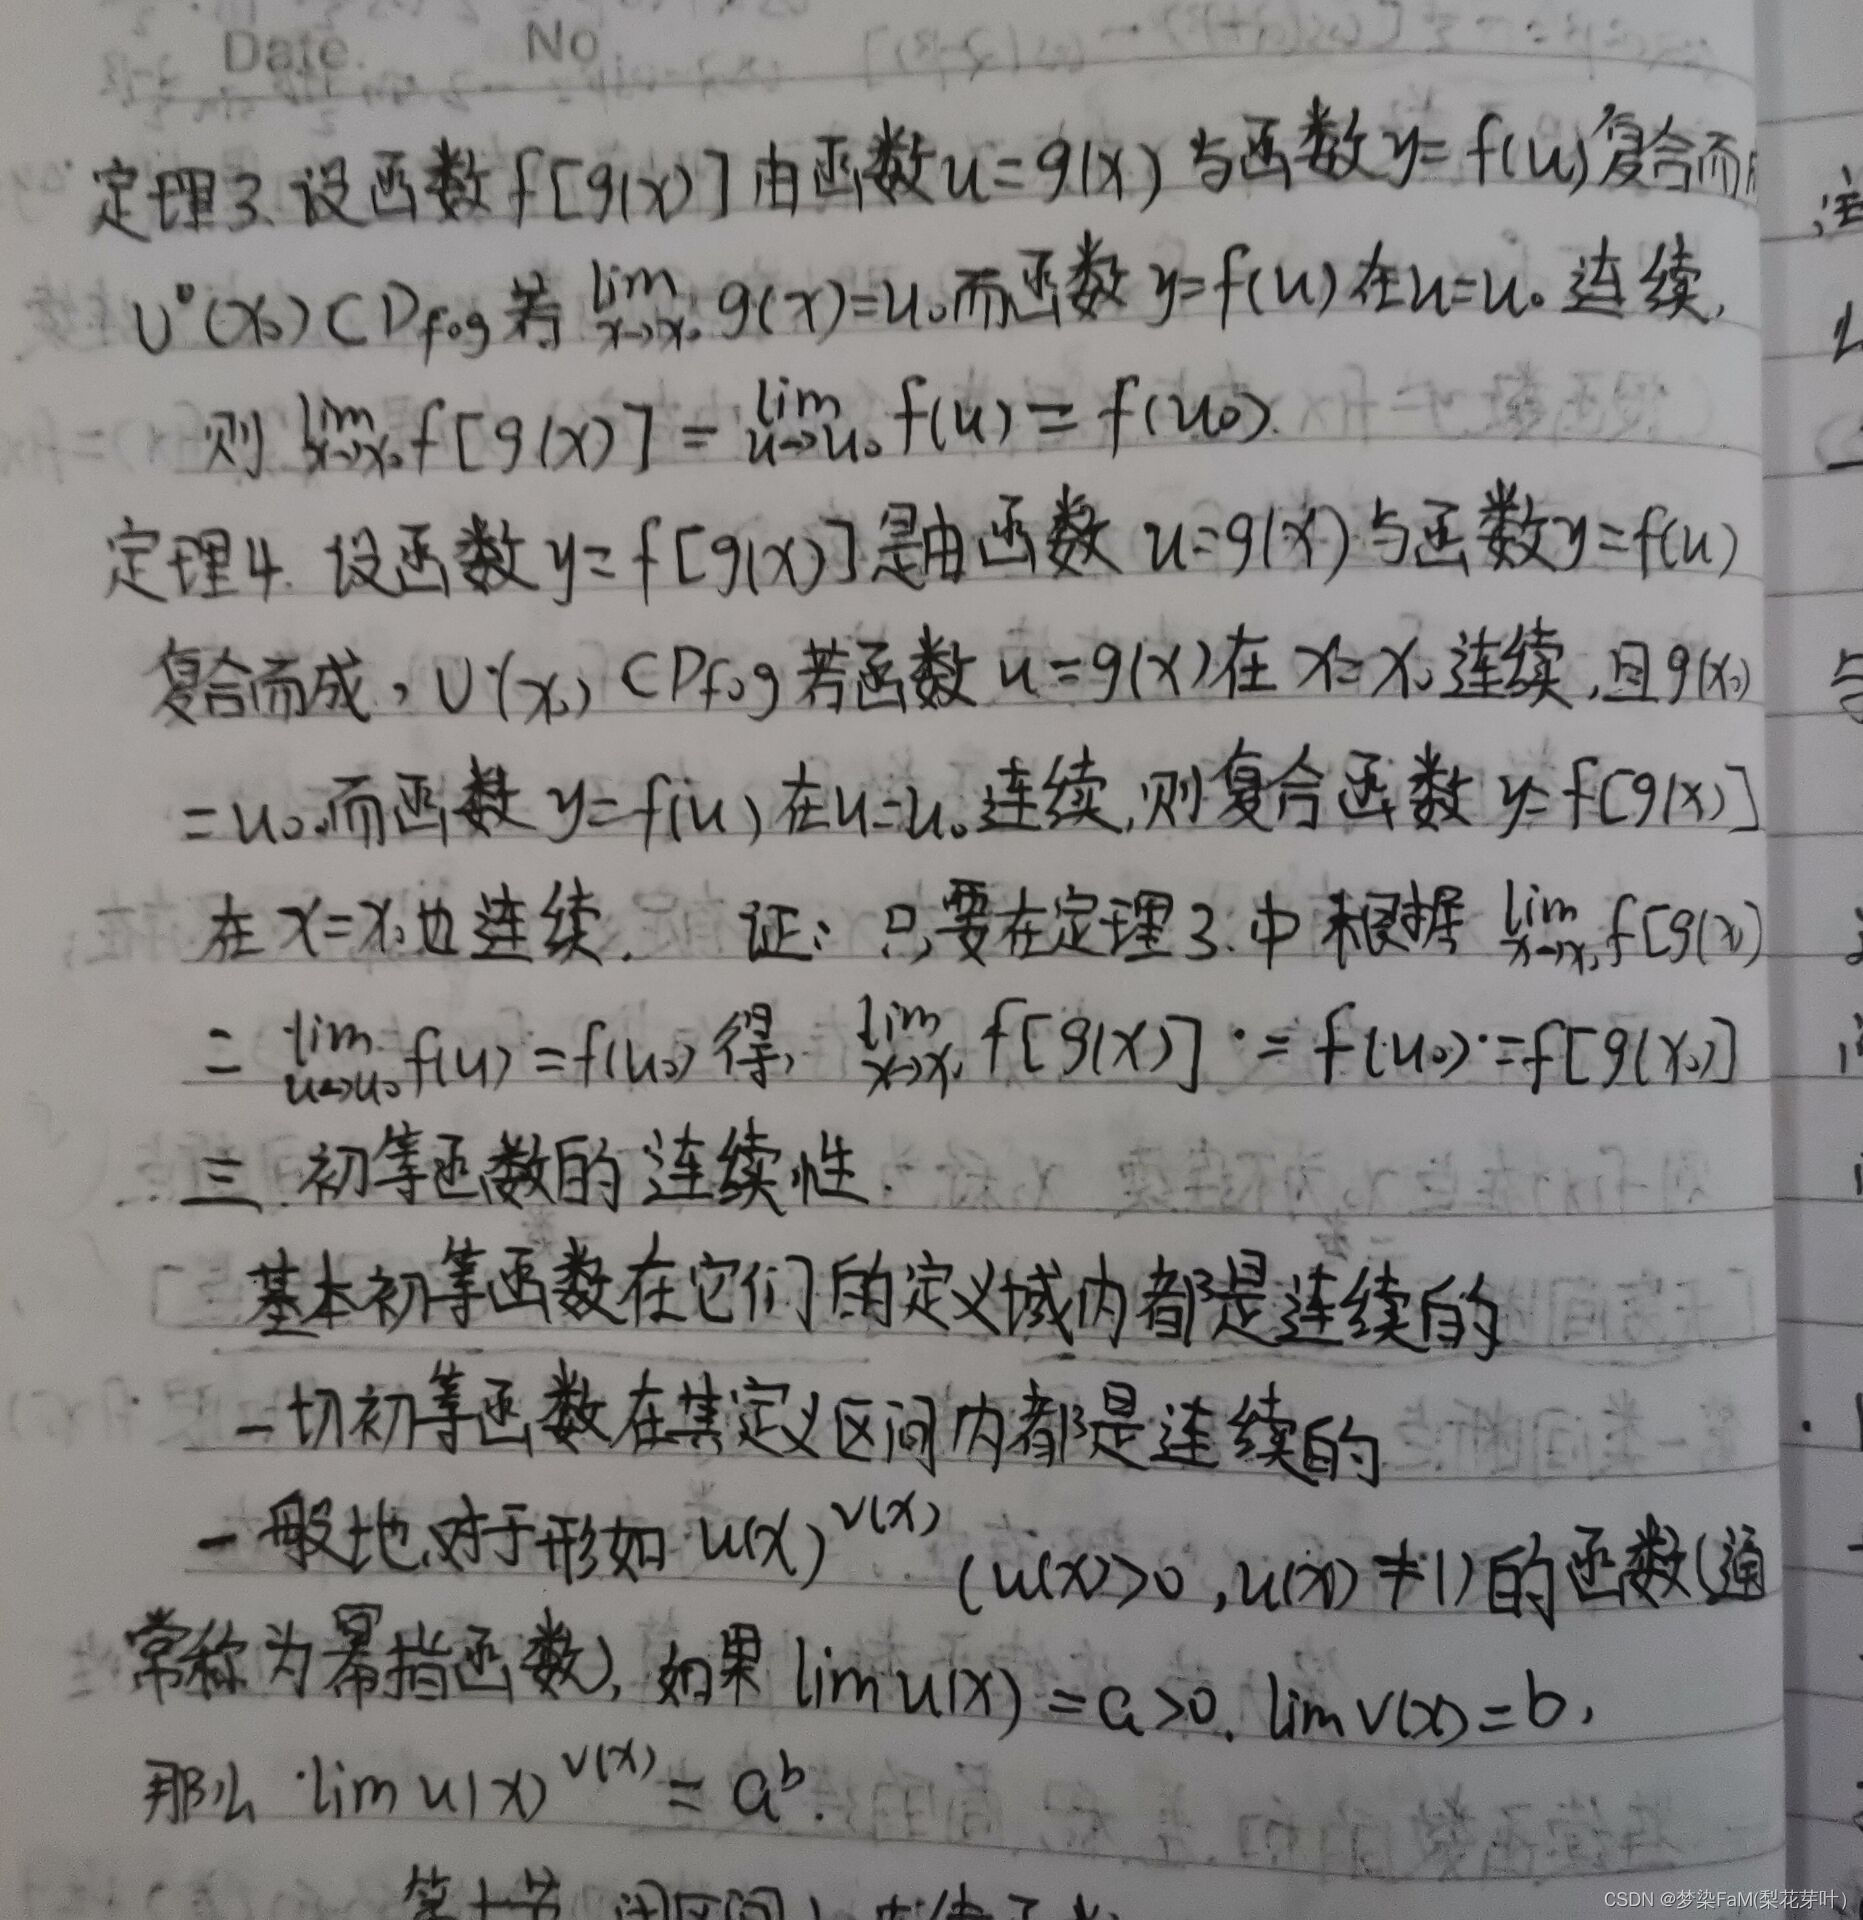 Date. No
定理3. 设函数 f[g(x)] 由函数 u=g(x) 与函数 y=f(u) 复合而
U°(x₀)⊂D_{f∘g} 若 lim_{x→x₀} g(x)=u₀ 而函数 y=f(u) 在 u=u₀ 连续,
则 lim_{x→x₀} f[g(x)] = lim_{u→u₀} f(u) = f(u₀).
定理4. 设函数 y=f[g(x)] 是由函数 u=g(x) 与函数 y=f(u)
复合而成, U(x₀)⊂D_{f∘g} 若函数 u=g(x) 在 x=x₀ 连续, 且 g(x₀)
=u₀. 而函数 y=f(u) 在 u=u₀ 连续, 则复合函数 y=f[g(x)]
在 x=x₀ 也连续. 证: 只要在定理3. 中根据 lim_{x→x₀} f[g(x)
= lim_{u→u₀} f(u) = f(u₀) 得, lim_{x→x₀} f[g(x)] = f(u₀) = f[g(x₀)]
三. 初等函数的连续性.
基本初等函数在它们的定义域内都是连续的
一切初等函数在其定义区间内都是连续的
一般地, 对于形如 u(x)^{v(x)} (u(x)>0, u(x)≠1) 的函数(通
常称为幂指函数), 如果 lim u(x) = a>0. lim v(x) = b,
那么 lim u(x)^{v(x)} = a^b.
CSDN @梦染FaM(梨花芽叶)